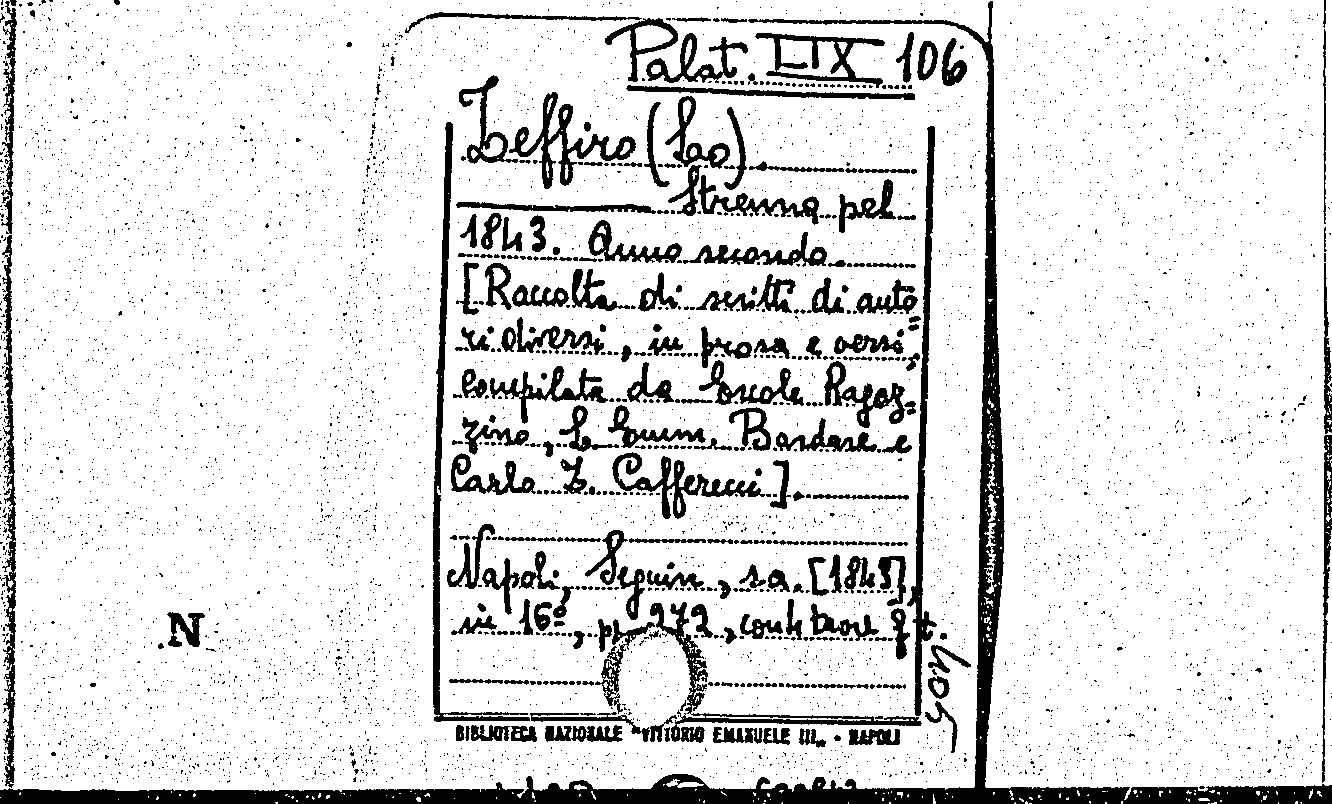 Palat. LIX 106
Zeffiro (Lo).
Strenna pel
1843. Anno secondo.
[Raccolta di scritti di auto
ri diversi, in prosa e versi,
compilata da Ercole Ragaz=
zino, L. Emm. Bardare e
Carlo Z. Cafferecci].
Napoli, Seguin, s.a. [1843],
in 16º, pp. 272, con tavole f. t.
N
BIBLIOTECA NAZIONALE "VITTORIO EMANUELE III„ - NAPOLI